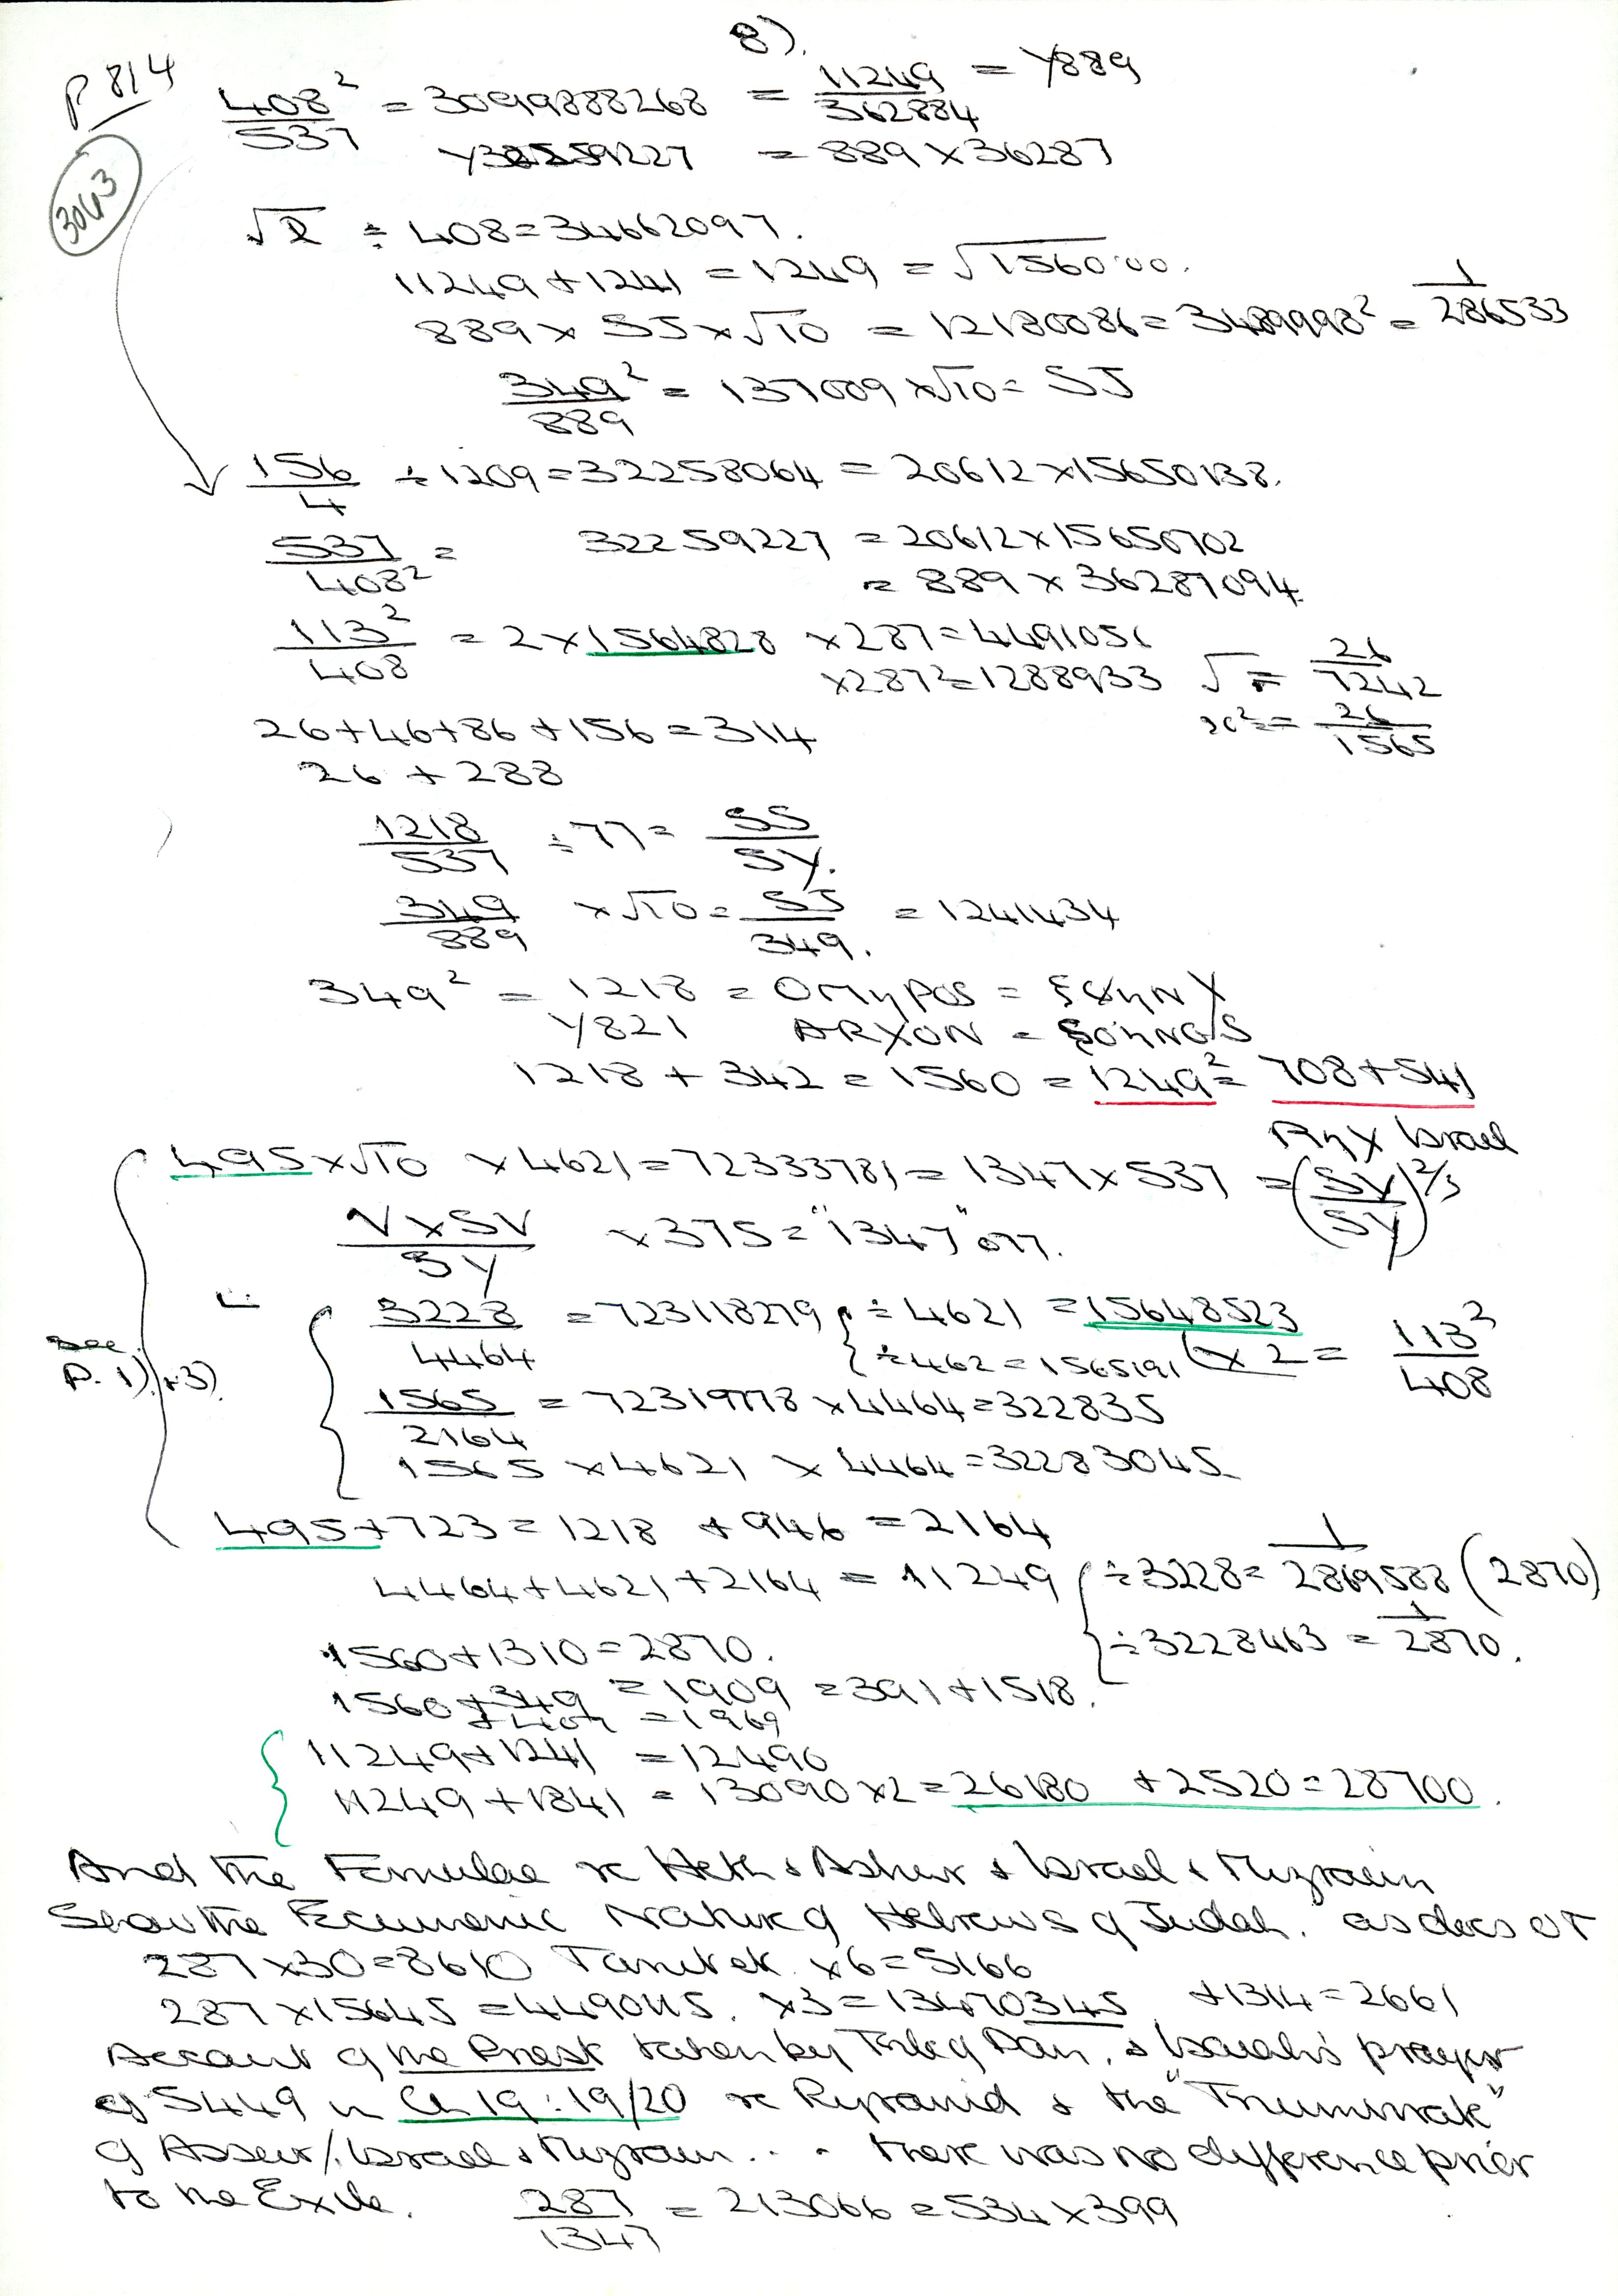 8).
P 814
3043
408²/537 = 3099888268 = 11249/362884 = Y889
= 889 x 36287
√2 ÷ 408 = 34662097.
11249 + 1241 = 1249 = √156000.
889 x SS x √10 = 12180086 = 3489998² = 1/286533
349²/889 = 137009 x √10 = SS
156/4 ÷ 1209 = 32258064 = 20612 x 15650138.
537/408² = 32259227 = 20612 x 15650702
= 889 x 36287094
113²/408 = 2 x 1564828 x 287 = 4491051
x 287² = 1288933 √ = 26/7242
x² = 26/1565
26 + 46 + 86 + 156 = 314
26 + 288
1218/537 ÷ 77 = SS/SY.
349/889 x √10 = SS/349. = 1241434
349² = 1218 =
Y821 ARXON =
1218 + 342 = 1560 = 1249² = 708 + 541
Israel
495 x √10 x 4621 = 72333781 = 1347 x 537 = (SV/SY)^2/3
V x SV/SY x 375 = "1347" 077.
3228/4464 = 723118279 ÷ 4621 = 15648523
÷ 462 = 1565191 (x 2 = 113²/408
see
P. 1) + 3).
1565/2164 = 72319778 x 4464 = 322835
1565 x 4621 x 4464 = 32283045
495 + 723 = 1218 + 946 = 2164
4464 + 4621 + 2164 = 11249 ÷ 3228 = 1/2869588 (2870)
÷ 3228463 = 1/2870.
1560 + 1310 = 2870.
1560 + 349 = 1909 = 391 + 1518.
+ 409 = 1969
11249 + 1241 = 12490
11249 + 1841 = 13090 x 2 = 26180 + 2520 = 28700.
And the Formulae re Heth & Asher & Israel & Mizraim
Show the Ecumenic Nature of Hebrews of Judah, as does OT
287 x 30 = 8610 x 6 = 5166
287 x 15645 = 4490115. x 3 = 13470345 + 1314 = 2661
Account of the Priest taken by Tribe of Dan, & Isaiah's prayer
of 5449 in Ch 19:19/20 re Pyramid & the "Triumvirate"
of Asseur/. Israel & Mizraim... there was no difference prior
to the Exile. 287/1347 = 213066 = 534 x 399